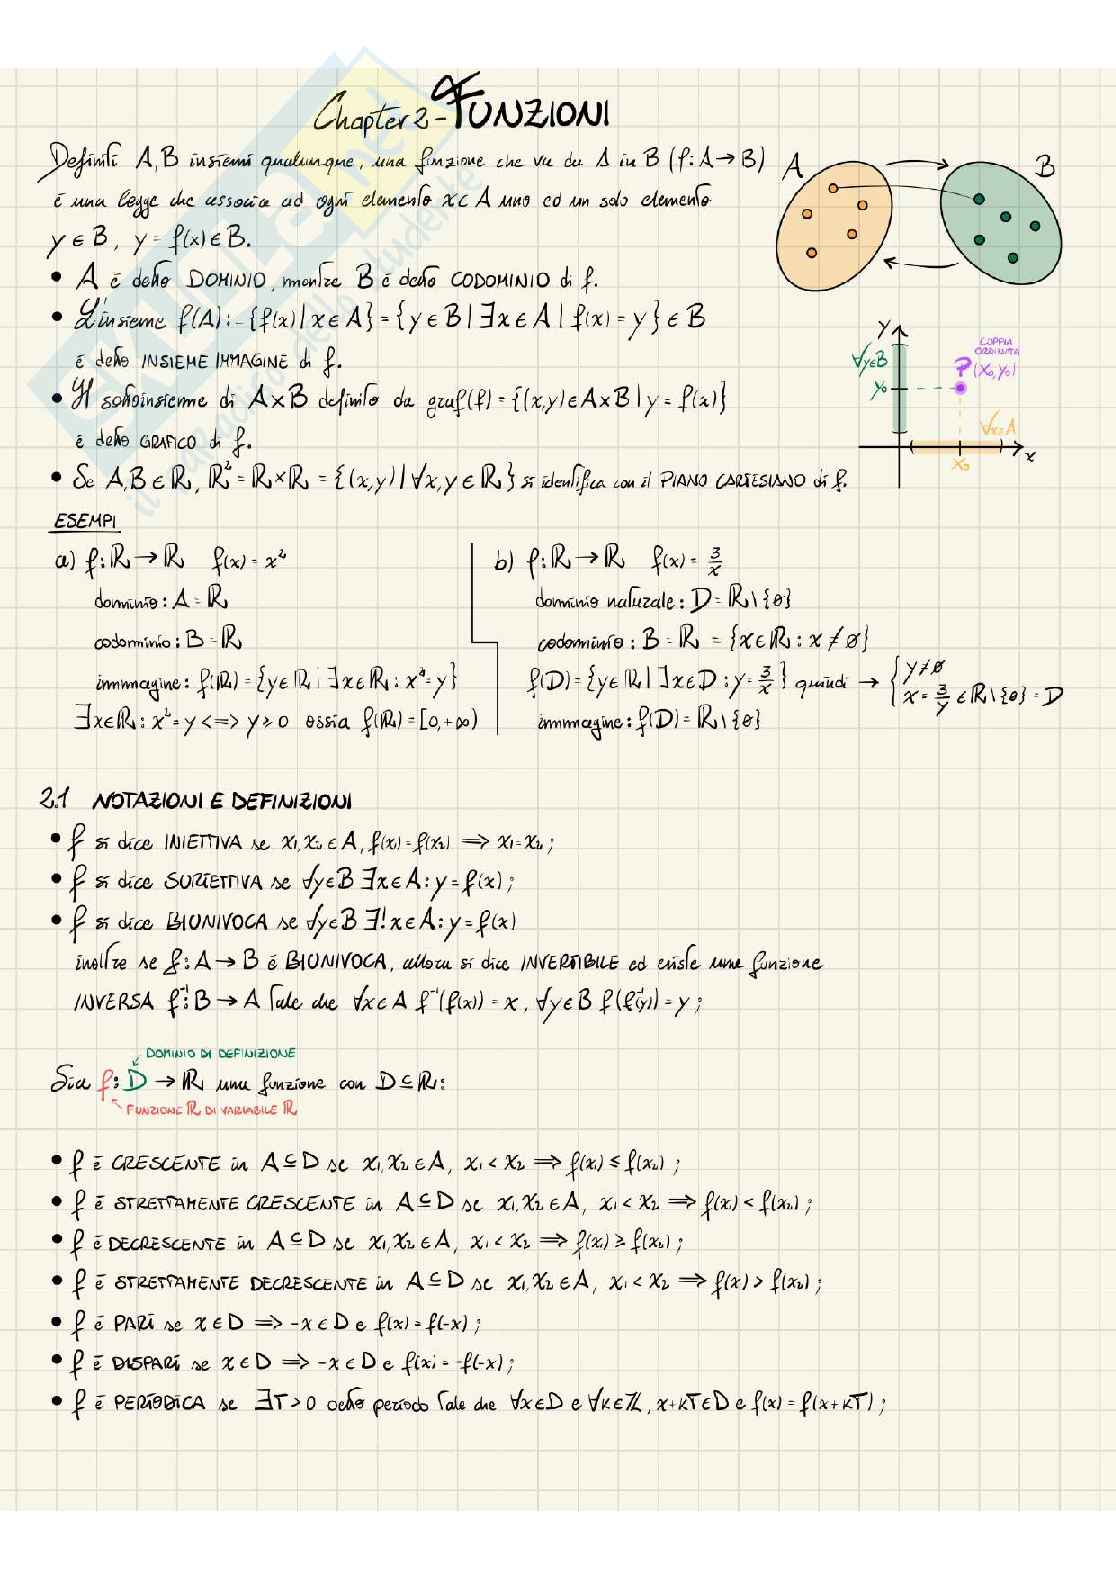 Chapter 2 - FUNZIONI
Definiti A,B insiemi qualunque, una funzione che va da A in B (f: A → B)
è una legge che associa ad ogni elemento x ∈ A uno ed un solo elemento
y ∈ B, y = f(x) ∈ B.
A B
• A è detto DOMINIO, mentre B è detto CODOMINIO di f.
• L'insieme f(A) := {f(x) | x ∈ A} = {y ∈ B | ∃x ∈ A | f(x) = y} ∈ B
è detto INSIEME IMMAGINE di f.
• Il sottoinsieme di A×B definito da graf(f) = {(x,y) ∈ A×B | y = f(x)}
è detto GRAFICO di f.
y
∀y∈B
y₀
COPPIA
ORDINATA
P(x₀,y₀)
∀x∈A
x₀
x
• Se A,B ∈ ℝ, ℝ² = ℝ×ℝ = {(x,y) | ∀x,y ∈ ℝ} si identifica con il PIANO CARTESIANO di f.
ESEMPI
a) f: ℝ → ℝ f(x) = x²
dominio: A = ℝ
codominio: B = ℝ
immagine: f(ℝ) = {y∈ℝ | ∃x∈ℝ: x² = y}
∃x∈ℝ: x² = y <=> y ≥ 0 ossia f(ℝ) = [0, +∞)
b) f: ℝ → ℝ f(x) = 3/x
dominio naturale: D = ℝ\{0}
codominio: B = ℝ = {x∈ℝ: x ≠ 0}
f(D) = {y∈ℝ | ∃x∈D: y = 3/x} quindi → { y≠0
x = 3/y ∈ ℝ\{0} = D
immagine: f(D) = ℝ\{0}
2.1 NOTAZIONI E DEFINIZIONI
• f si dice INIETTIVA se x₁,x₂ ∈ A, f(x₁) = f(x₂) ⟹ x₁ = x₂;
• f si dice SURIETTIVA se ∀y∈B ∃x∈A: y = f(x);
• f si dice BIUNIVOCA se ∀y∈B ∃!x∈A: y = f(x)
inoltre se f: A → B è BIUNIVOCA, allora si dice INVERTIBILE ed esiste una funzione
INVERSA f⁻¹: B → A tale che ∀x∈A f⁻¹(f(x)) = x, ∀y∈B f(f⁻¹(y)) = y;
DOMINIO DI DEFINIZIONE
Sia f: D → ℝ una funzione con D ⊆ ℝ:
FUNZIONE ℝ DI VARIABILE ℝ
• f è CRESCENTE in A ⊆ D se x₁,x₂ ∈ A, x₁ < x₂ ⟹ f(x₁) ≤ f(x₂);
• f è STRETTAMENTE CRESCENTE in A ⊆ D se x₁,x₂ ∈ A, x₁ < x₂ ⟹ f(x₁) < f(x₂);
• f è DECRESCENTE in A ⊆ D se x₁,x₂ ∈ A, x₁ < x₂ ⟹ f(x₁) ≥ f(x₂);
• f è STRETTAMENTE DECRESCENTE in A ⊆ D se x₁,x₂ ∈ A, x₁ < x₂ ⟹ f(x₁) > f(x₂);
• f è PARI se x ∈ D ⟹ -x ∈ D e f(x) = f(-x);
• f è DISPARI se x ∈ D ⟹ -x ∈ D e f(x) = -f(-x);
• f è PERIODICA se ∃T > 0 detto periodo tale che ∀x∈D e ∀k∈ℤ, x+kT∈D e f(x) = f(x+kT);